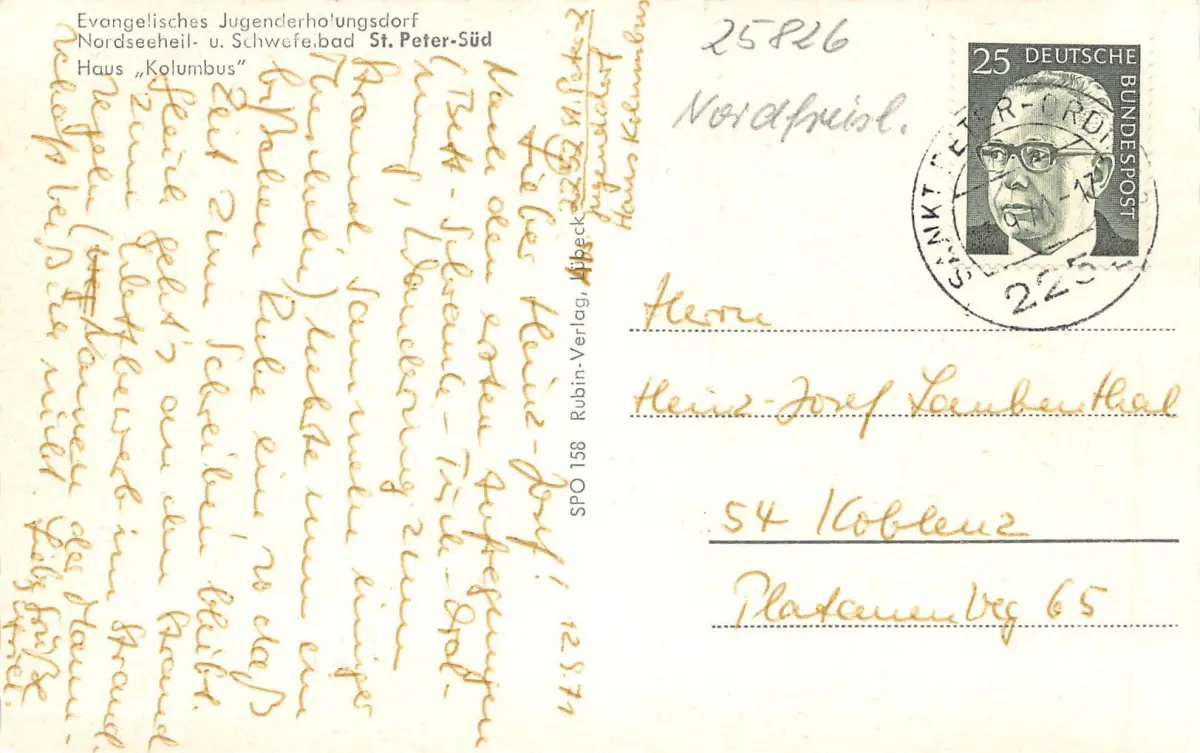 Evangelisches Jugenderholungsdorf
Nordseeheil- u. Schwefelbad St. Peter-Süd
Haus „Kolumbus"
25826
Nordfriesl.
25 DEUTSCHE
BUNDESPOST
SANKT PETER-ORDI
225
SPO 158 Rubin-Verlag, Lübeck
2252 St. Peter 2
Jugenddorf
Haus Kolumbus
12.9.71
Lieber Heinz-Josef!
Nach den ersten Aufregungen
(Bett- Schrank- Tisch-
Wanderung zum
Strand, sammeln einiger
Muscheln) kehrte nun ein
bißchen Ruhe ein, so daß
Zeit zum Schreiben bleibt.
Gleich geht's an den Strand
zum Wettbewerb im Strand
segeln (Namen der Mann-
schaft weiß ich nicht
Herrn
Heinz-Josef Laubenthal
54 Koblenz
Platanenweg 65